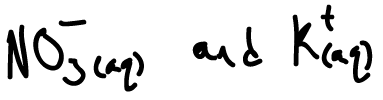 NO₃⁻(aq) and K⁺(aq)